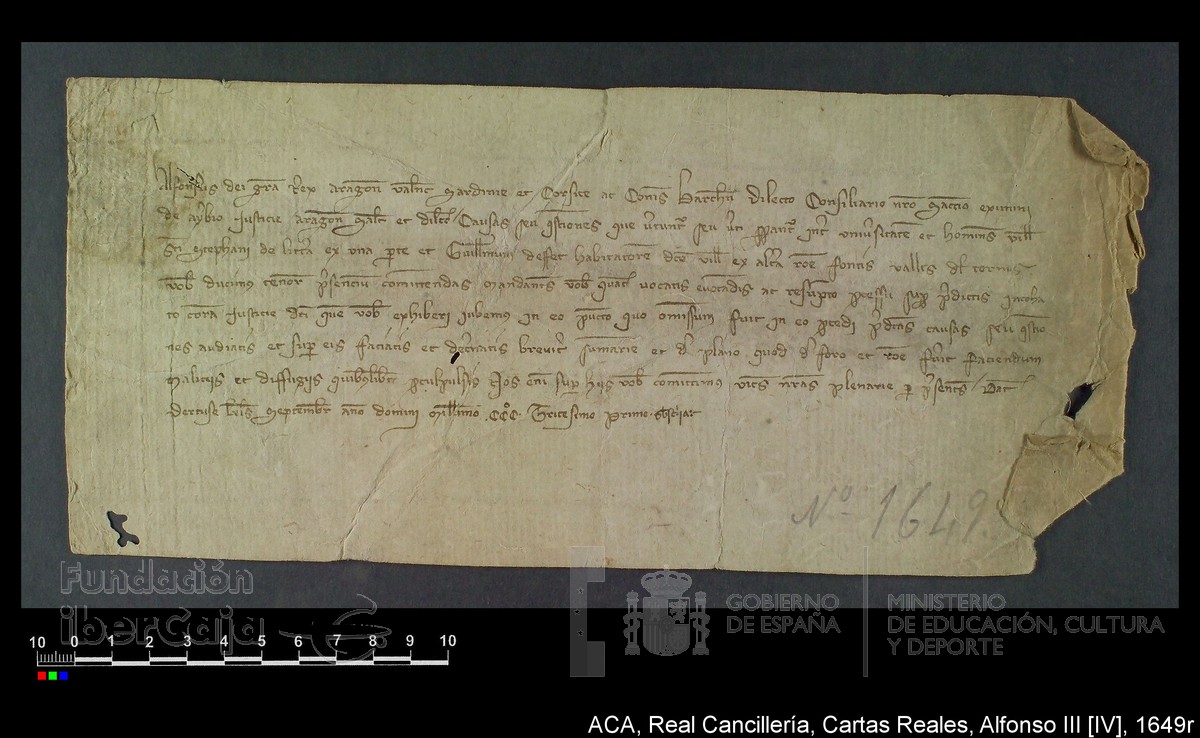 Alfonsus dei gra Rex Aragon Valenc Sardinie et Corsice ac Comes Barchn Dilecto Consiliario nro Sanccio exemini
de ayerbio Justicie Aragon salt et dilecc Causas seu qstiones que vertunt seu verti sperantr intr universitatem et homines ville
Sti Stephani de litera ex una parte et Guillmum desset habitatorem dce ville ex altera roe fontis vallis de tornos
vob ducimus tenore psencium comittendas mandantes vob quatenus vocatis evocandis ac resumpto pcessu sup pdictis incoha
to coram Justicie dci que vob exhiberi iubemus in eo puncto quo omissum fuit in eo pcedi pdctas causas seu qstio
nes audiatis et super eis faciatis et decernatis breviter sumarie et de plano quod de foro et roe fuerit faciendum
Maliciis et diffugiis quibuslibet pculpulsis Nos eni sup hiis vob comittimus vices nras plenarie p psentes Dat
Dertuse Septembr anno domini Millimo CCC Tricesimo primo
Nº 1649.
Fundación
iberCaja
10 0 1 2 3 4 5 6 7 8 9 10
GOBIERNO
DE ESPAÑA
MINISTERIO
DE EDUCACIÓN, CULTURA
Y DEPORTE
ACA, Real Cancillería, Cartas Reales, Alfonso III [IV], 1649r